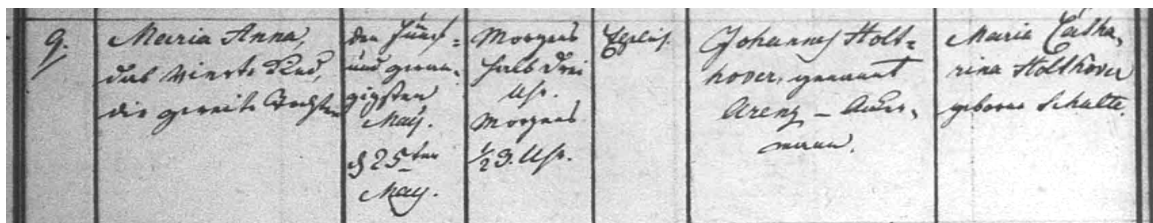 9.
Maria Anna,
das vierte Kind,
die zweite Tochter
den fünf=
und zwan=
zigsten
May.
d 25ten
May.
Morgens
halb drei
Uhr.
Morgens
1/2 3. Uhr.
Ehelich.
Johannes Holt=
hover, genannt
Arenz – Acker,
mann.
Maria Catha,
rina Holthöver
geborne Schulte.